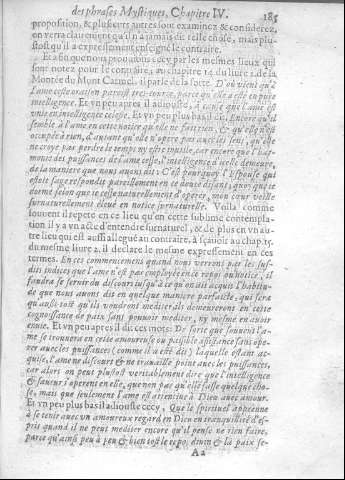 des phrases Mystiques, Chapitre IV. 185
proposition, & plusieurs autres sont examinez & considerez,
on verra clairement qu'il n'a jamais dit telle chose, mais plu-
stost qu'il a expressement enseigné le contraire.
Et afin que nous produisions cecy par les mesmes lieux qui
sont notez pour le contraire, au chapitre 14. du livre 2. de la
Montée du Mont Carmel, il parle de la sorte. D'où vient qu'à
l'ame cette oraison paroist tres-courte, parce qu'elle a esté en pure
intelligence. Et un peu apres il adjouste, à cause que l'ame est
unie en intelligence celeste. Et un peu plus bas il dit, Encore qu'il
semble à l'ame en cette notice qu'elle ne fait rien, & qu'elle n'est
occupée à rien, d'autant qu'elle n'opere pas avec les sens, qu'elle
ne croye pas perdre le temps ny estre inutile, car encore que l'har-
monie des puissances de l'ame cesse, l'intelligence d'icelle demeure,
de la maniere que nous avons dit: C'est pourquoy l'Espouse qui
estoit sage respondit pareillement en ce doute disant, quoy que je
dorme selon que je cesse naturellement d'operer, mon cœur veille
surnaturellement élevé en notice surnaturelle. Voila comme
souvent il repete en ce lieu qu'en cette sublime contempla-
tion il y a un acte d'entendre surnaturel, & de plus en un au-
tre lieu qui est aussi allegué au contraire, à sçavoir au chap. 15.
du mesme livre 2. il declare le mesme expressement en ces
termes. En ces commencemens quand nous verrons par les sus-
dits indices que l'ame n'est pas employée en ce repos ou notice, il
faudra se servir du discours jusqu'à ce qu'on ait acquis l'habitu-
de que nous avons dit en quelque maniere parfaite, qui sera
qu'aussi-tost qu'ils voudront mediter, ils demeureront en cette
cognoissance de paix sans pouvoir mediter, ny mesme en avoir
envie. Et un peu apres il dit ces mots: De sorte que souvent l'a-
me se trouvera en cette amoureuse ou paisible assistance sans ope-
rer avec les puissances (comme il a esté dit) laquelle estant ac-
quise, l'ame ne discourt & ne travaille point avec les puissances,
car alors on peut plustost veritablement dire que l'intelligence
& saveur s'operent en elle, que non pas qu'elle fasse quelque cho-
se, mais que seulement l'ame est attentive à Dieu avec amour.
Et un peu plus bas il adjouste cecy, Que le spirituel apprenne
à se tenir avec un amoureux regard en Dieu en tranquillité d'es-
prit quand il ne peut mediter encore qu'il pense ne rien faire,
parce qu'ainsi peu à peu & bien tost le repos divin & la paix se-
Aa